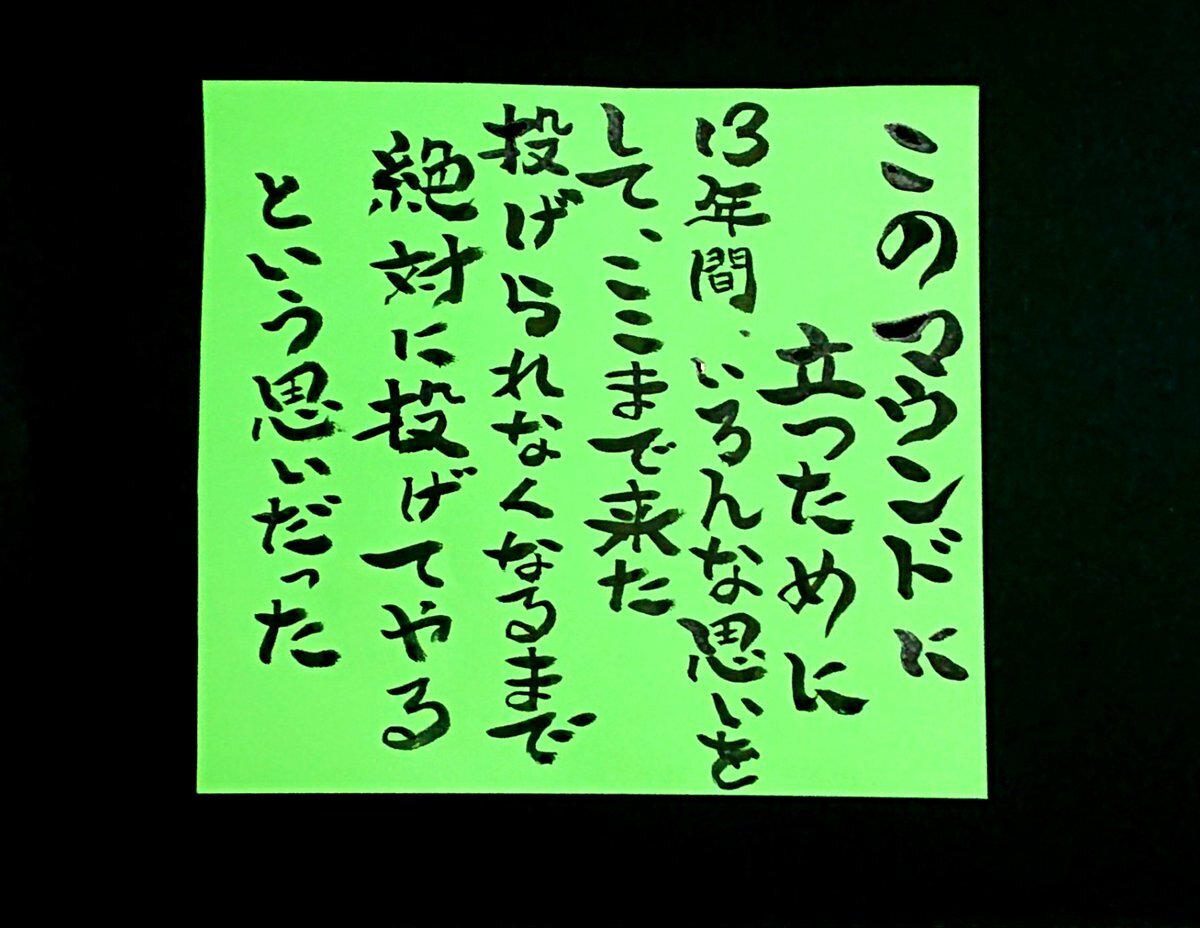 このマウンドに
立つために
13年間、いろんな思いを
して、ここまで来た
投げられなくなるまで
絶対に投げてやる
という思いだった